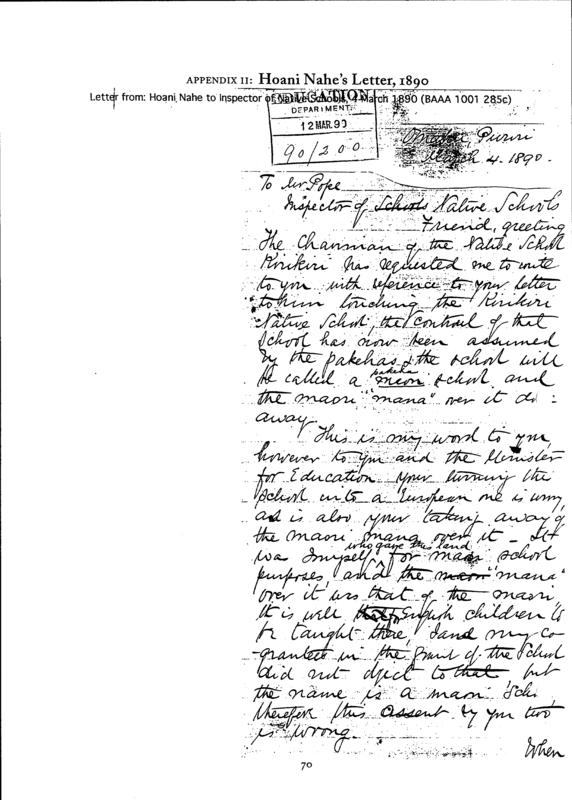 APPENDIX II: Hoani Nahe's Letter, 1890
Letter from: Hoani Nahe to Inspector of Native Schools, 4 March 1890 (BAAA 1001 285c)
EDUCATION
DEPARTMENT
12 MAR. 90
90/200
Omahu, Puriri
March 4. 1890.
To Mr Pope
Inspector of Schools Native Schools
Friend, greeting
The Chairman of the Native School
Kirikiri has requested me to write
to you with reference to your letter
to him touching the Kirikiri
Native School, the control of that
School has now been assumed
by the pakehas & the school will
be called a pakeha school and
the maori "mana" over it do :
away
This is my word to you,
however to you and the Minister
for Education your turning the
School into a European one is wrong,
as is also your taking away of
the maori mana over it - It
was I myself who gave this land for maori school
purposes, and the maori "mana"
over it was that of the maori
It is well that English children is
be taught there, I and my co
-grantees in the Grant of the School
did not object to that, but
the name is a maori School
therefore this assent by you two
is wrong.
When
70